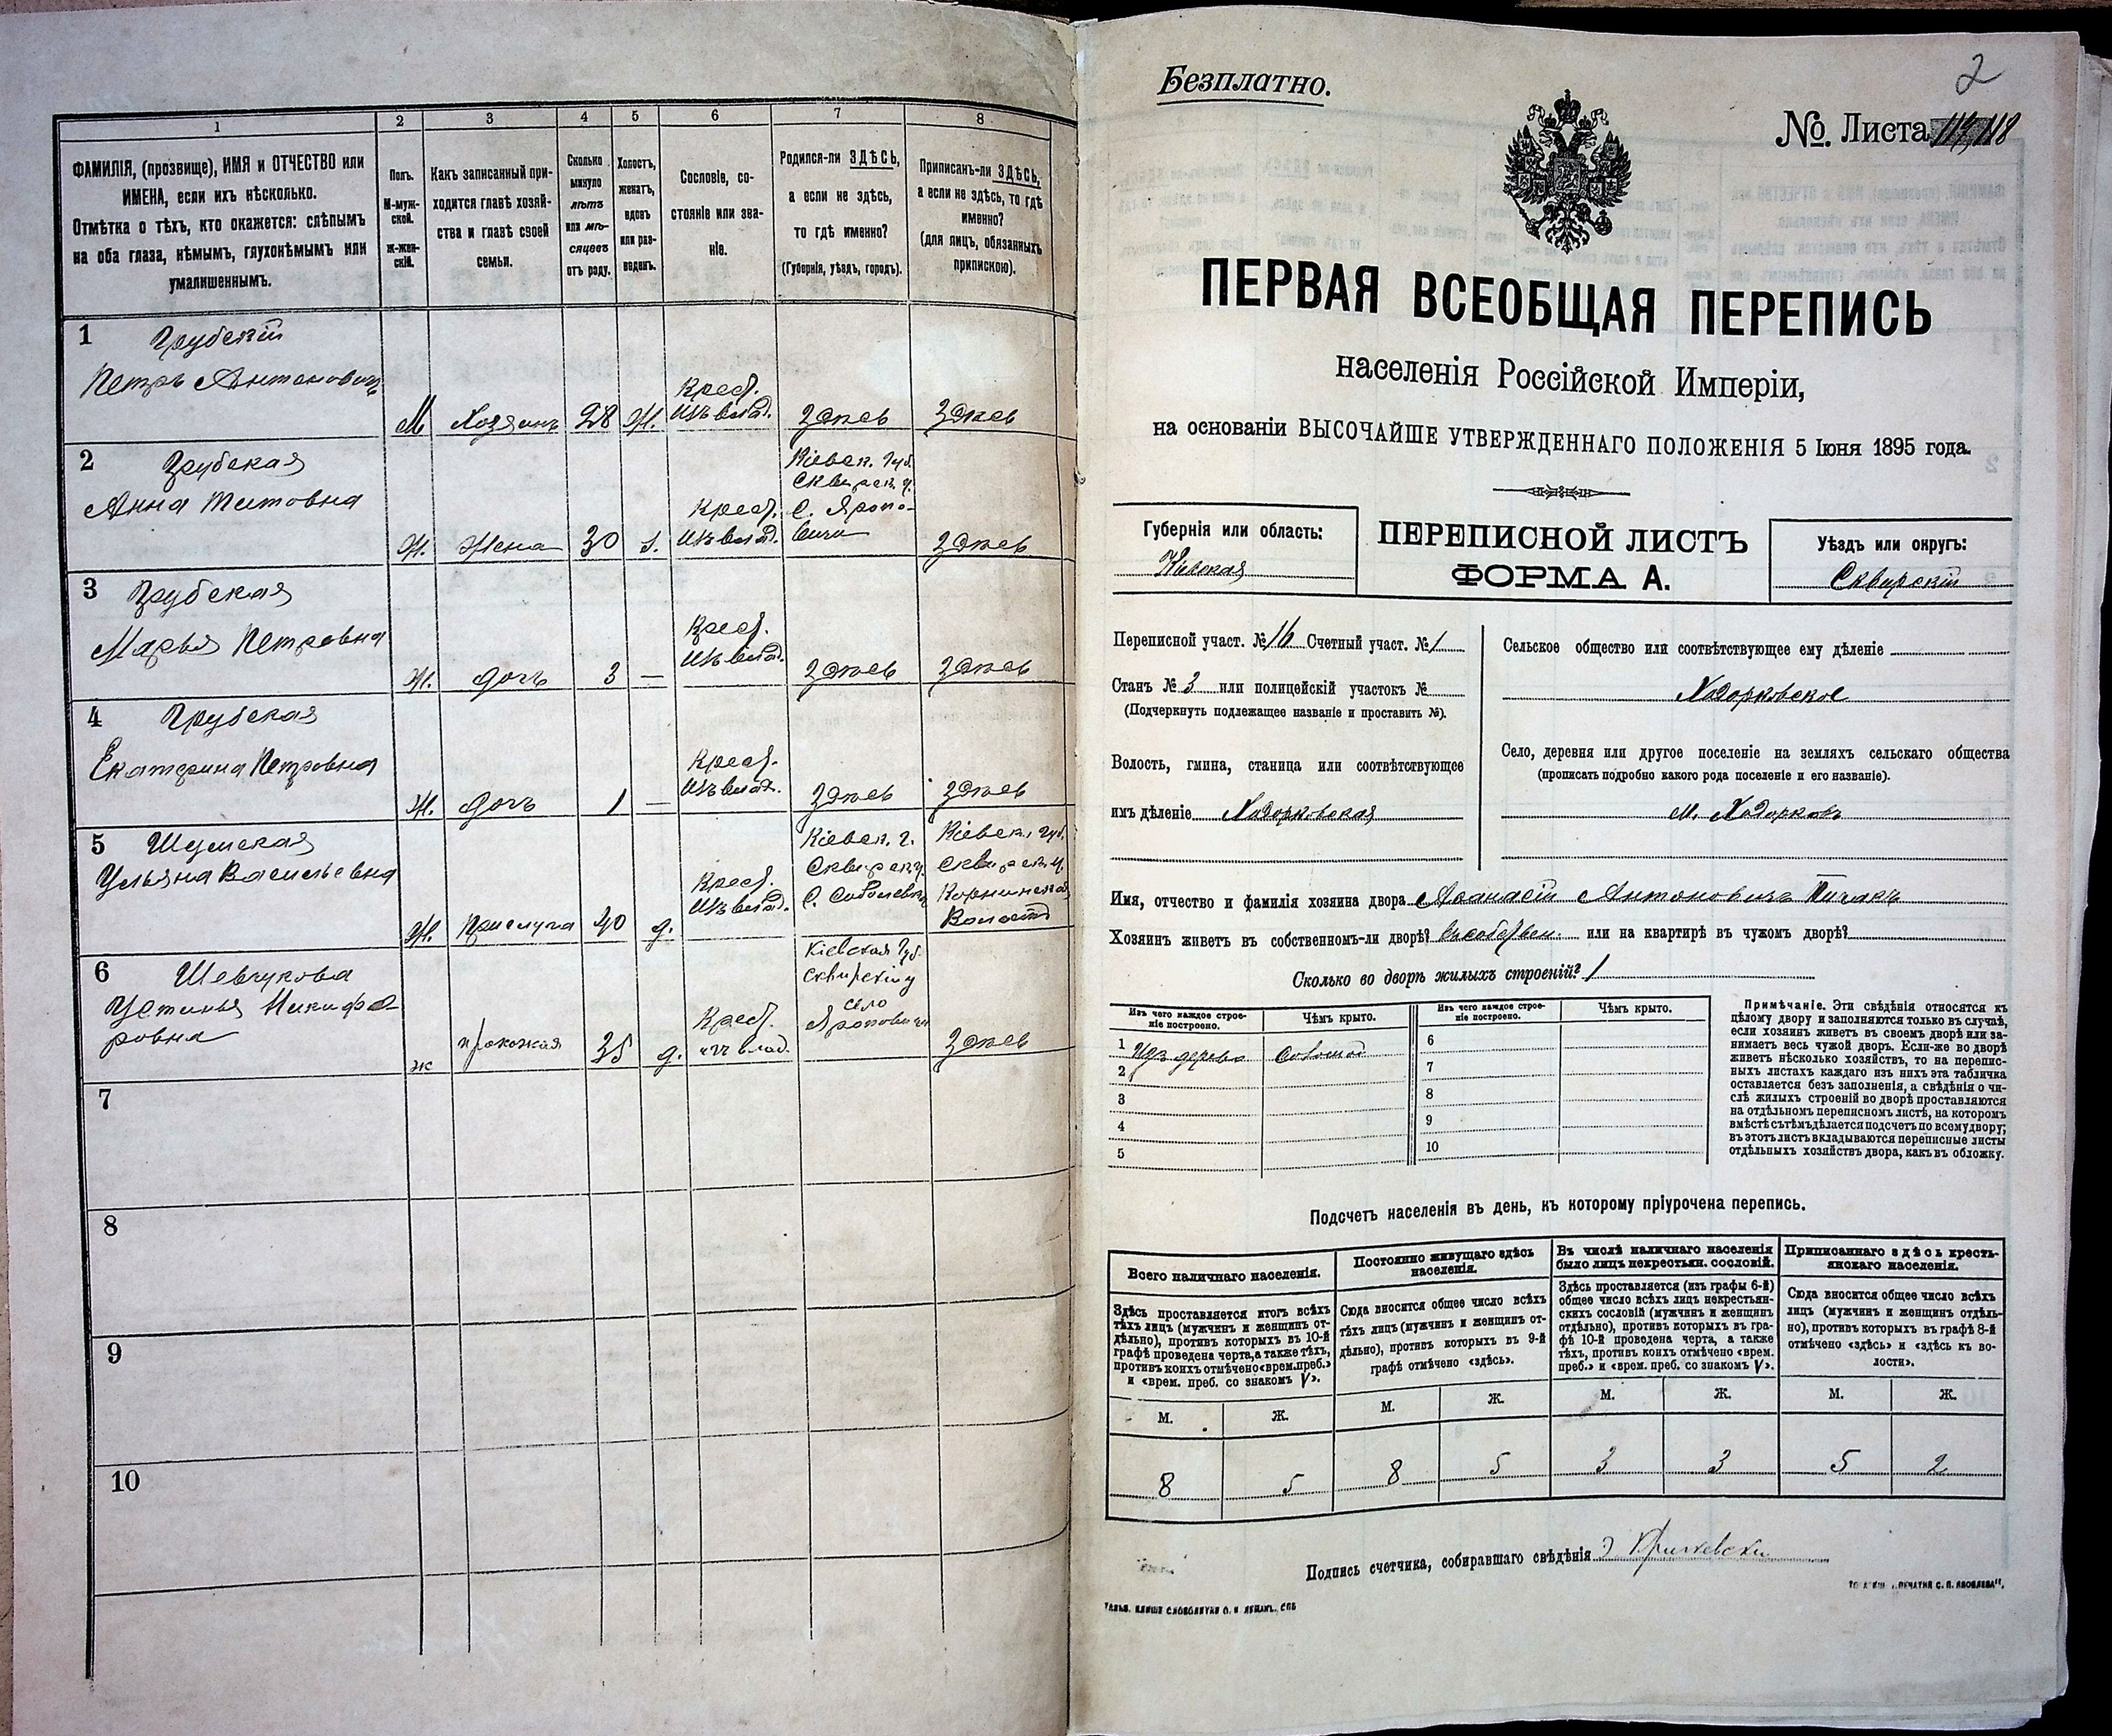 1
2
3
4
5
6
7
8
ФАМИЛІЯ, (прозвище), ИМЯ и ОТЧЕСТВО или
ИМЕНА, если ихъ нѣсколько.
Отмѣтка о тѣхъ, кто окажется: слѣпымъ
на оба глаза, нѣмымъ, глухонѣмымъ или
умалишеннымъ.
Полъ.
М-муж-
ской.
Ж-жен-
скій.
Какъ записанный при-
ходится главѣ хозяй-
ства и главѣ своей
семьи.
Сколько
минуло
лѣтъ
или мѣ-
сяцевъ
отъ роду.
Холостъ,
женатъ,
вдовъ
или раз-
веденъ.
Сословіе, со-
стояніе или зва-
ніе.
Родился-ли ЗДѢСЬ,
а если не здѣсь,
то гдѣ именно?
(Губернія, уѣздъ, городъ).
Приписанъ-ли ЗДѢСЬ,
а если не здѣсь, то гдѣ
именно?
(для лицъ, обязанныхъ
припискою).
1 Грубскій
Петръ Антоновичъ
М Хозяинъ 28 Ж. Крест. изъ влад. Здѣсь Здѣсь
2 Грубская
Анна Титовна
Ж. Жена 30 з. Крест. изъ влад.
Кіевск. Губ.
Сквирск. у.
С. Яропо-
вичи
Здѣсь
3 Грубская
Марья Петровна
Ж. дочь 3 — Крест. изъ влад. Здѣсь Здѣсь
4 Грубская
Екатерина Петровна
Ж. дочь 1 — Крест. изъ влад. Здѣсь Здѣсь
5 Шумская
Ульяна Васильевна
Ж. Прислуга 40 д. Крест. изъ влад.
Кіевск. г.
Сквирск. у.
С. Соболевка
Кіевск. губ.
Сквирск. у.
Корнинской
Волости
6 Шевчукова
Устинья Никифо-
ровна
ж 35 д. Крест. изъ влад.
Кіевская Губ.
Сквирскій у
село
Яроповичи
Здѣсь
7
8
9
10
Безплатно.
2
№. Листа 118
ПЕРВАЯ ВСЕОБЩАЯ ПЕРЕПИСЬ
населенія Россійской Имперіи,
на основаніи ВЫСОЧАЙШЕ УТВЕРЖДЕННАГО ПОЛОЖЕНІЯ 5 Іюня 1895 года.
Губернія или область:
Кіевская
ПЕРЕПИСНОЙ ЛИСТЪ
ФОРМА А.
Уѣздъ или округъ:
Сквирскій
Переписной участ. № 16 Счетный участ. № 1
Станъ № 3 или полицейскій участокъ №
(Подчеркнуть подлежащее названіе и проставить №).
Волость, гмина, станица или соотвѣтствующее
имъ дѣленіе Ходорковская
Сельское общество или соотвѣтствующее ему дѣленіе
Ходорковское
Село, деревня или другое поселеніе на земляхъ сельскаго общества
(прописать подробно какого рода поселеніе и его названіе).
М. Ходорковъ
Имя, отчество и фамилія хозяина двора Афанасій Антоновичъ Пичакъ
Хозяинъ живетъ въ собственномъ-ли дворѣ? Въ собствен. или на квартирѣ въ чужомъ дворѣ?
Сколько во дворѣ жилыхъ строеній? 1
Изъ чего каждое строе-
ніе построено.
Чѣмъ крыто.
Изъ чего каждое строе-
ніе построено.
Чѣмъ крыто.
1 Изъ дерева Соломой
2
3
4
5
6
7
8
9
10
Примѣчаніе. Эти свѣдѣнія относятся къ
цѣлому двору и заполняются только въ случаѣ,
если хозяинъ живетъ въ своемъ дворѣ или за-
нимаетъ весь чужой дворъ. Если-же во дворѣ
живетъ нѣсколько хозяйствъ, то на перепис-
ныхъ листахъ каждаго изъ нихъ эта табличка
оставляется безъ заполненія, а свѣдѣнія о чи-
слѣ жилыхъ строеній во дворѣ проставляются
на отдѣльномъ переписномъ листѣ, на которомъ
вмѣстѣ съ тѣмъ дѣлается подсчетъ по всему двору;
въ этотъ листъ вкладываются переписные листы
отдѣльныхъ хозяйствъ двора, какъ въ обложку.
Подсчетъ населенія въ день, къ которому пріурочена перепись.
Всего наличнаго населенія.
Постоянно живущаго здѣсь
населенія.
Въ числѣ наличнаго населенія
было лицъ некрестьян. сословій.
Приписаннаго здѣсь кресть-
янскаго населенія.
Здѣсь проставляется итогъ всѣхъ
тѣхъ лицъ (мужчинъ и женщинъ от-
дѣльно), противъ которыхъ въ 10-й
графѣ проведена черта, а также тѣхъ,
противъ коихъ отмѣчено «врем. преб.»
и «врем. преб. со знакомъ V».
Сюда вносится общее число всѣхъ
тѣхъ лицъ (мужчинъ и женщинъ от-
дѣльно), противъ которыхъ въ 9-й
графѣ отмѣчено «здѣсь».
Здѣсь проставляется (изъ графы 6-й)
общее число всѣхъ лицъ некрестьян-
скихъ сословій (мужчинъ и женщинъ
отдѣльно), противъ которыхъ въ гра-
фѣ 10-й проведена черта, а также
тѣхъ, противъ коихъ отмѣчено «врем.
преб.» и «врем. преб. со знакомъ V».
Сюда вносится общее число всѣхъ
лицъ (мужчинъ и женщинъ отдѣль-
но), противъ которыхъ въ графѣ 8-й
отмѣчено «здѣсь» и «здѣсь къ во-
лости».
М. Ж. М. Ж. М. Ж. М. Ж.
8 5 8 5 3 3 5 2
Подпись счетчика, собиравшаго свѣдѣнія